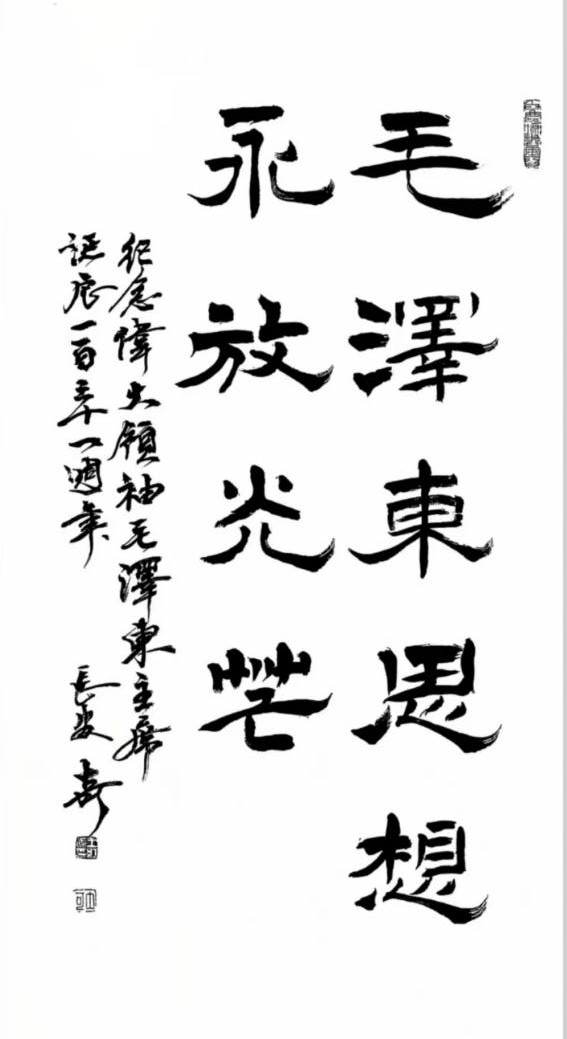 毛澤東思想
永放光芒
紀念偉大領袖毛澤東主席
誕辰一百三十一週年